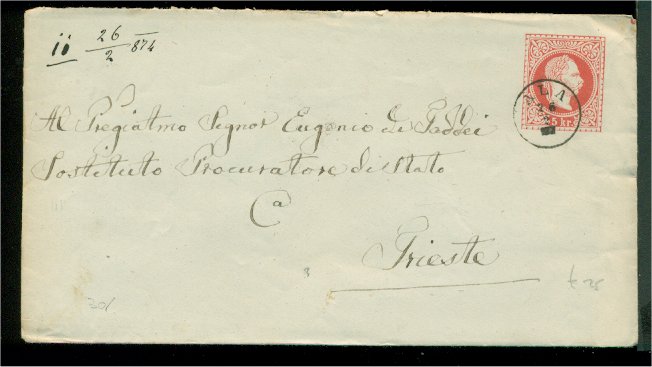 26
2 874
5 kr.
Al Pregiatmo Signor Eugenio de Taddei
Sostituto Procuratore di Stato
Ca
Trieste
30/